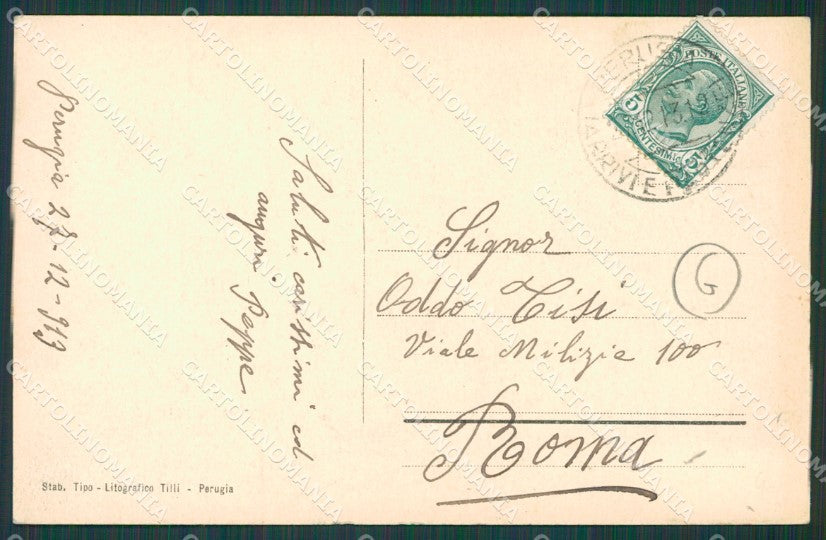 Perugia 27-12-913
Saluti carissimi ed
auguri Peppe
Signor
Oddo Tisi
Viale Milizie 100
Roma
G
POSTE ITALIANE
5 CENTESIMI 5
PERUGIA
ARRIVI E P
Stab. Tipo - Litografico Tilli - Perugia
CARTOLINOMANIA